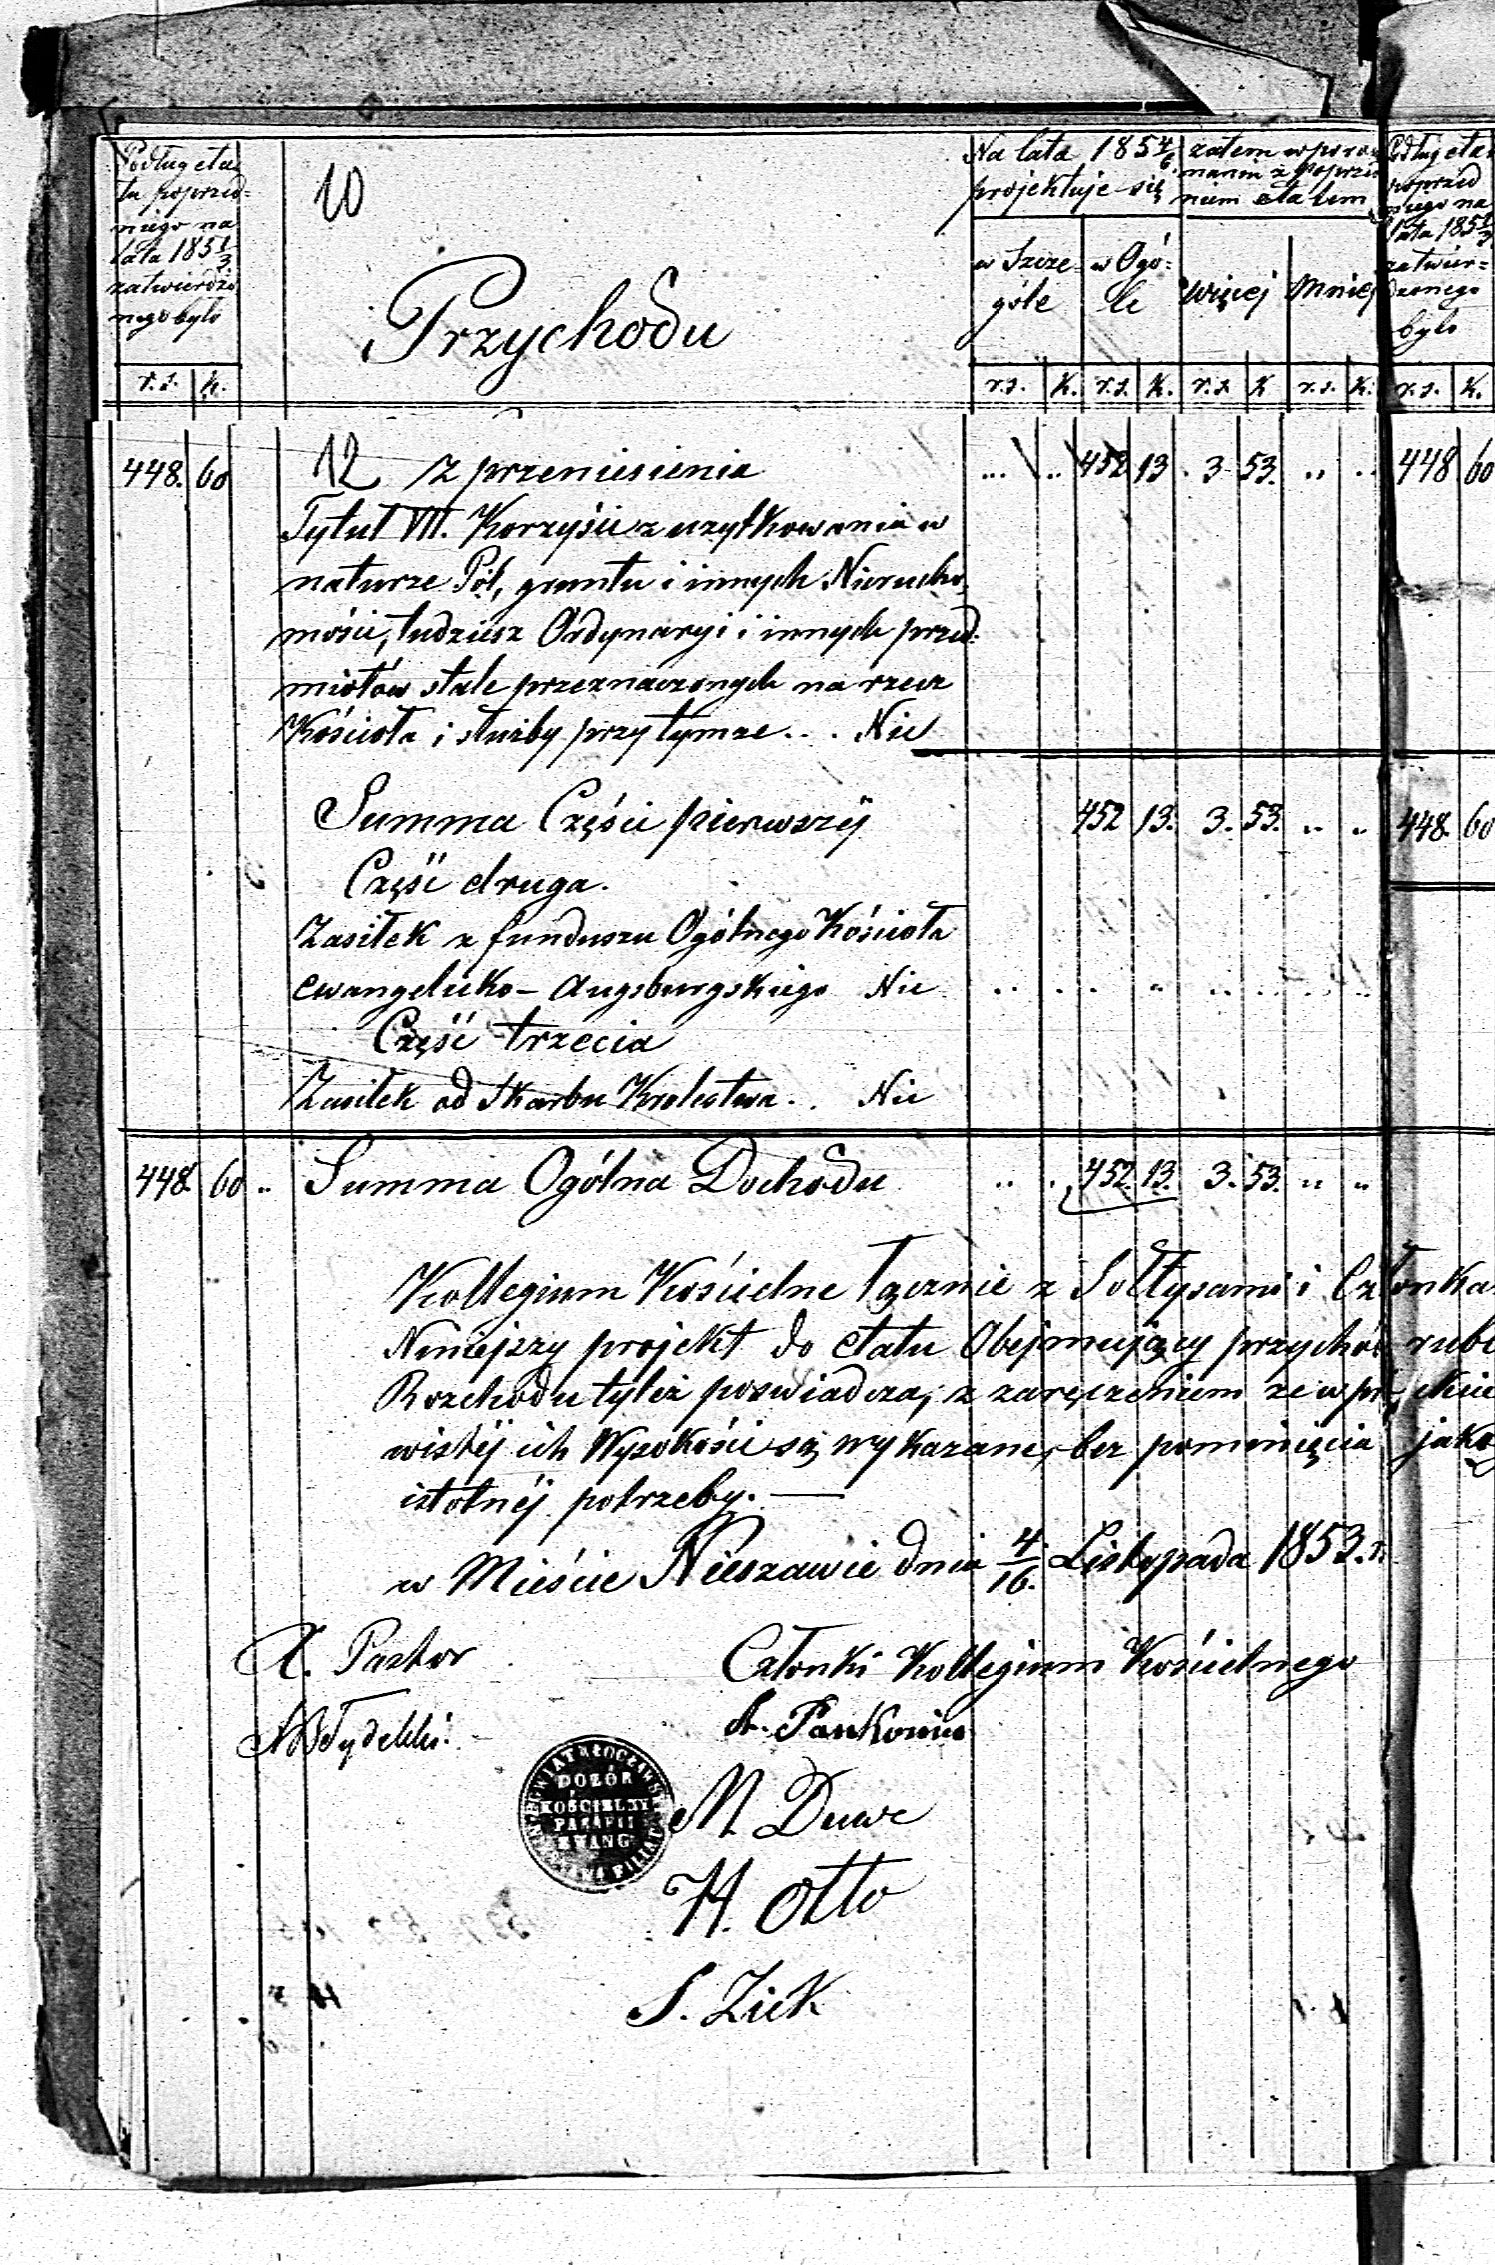 Podług eta-
tu poprzed-
niego na
lata 185 1/3
zatwierdzo
nego było
r. s. k.
10
Przychodu
Na lata 185 4/6
projektuje się
w Szcze-
góle
w Ogó-
le
zatem w porów
naniu z poprzed
niem etatem
Więcej
Mniej
r. s. K. r. s. K. r. s. K r. s. K.
Podług eta
poprzed
niego na
lata 185 1/3
zatwier-
dzonego
było
r. s. K.
448. 60 12 z przeniesienia ... .. 452 13 . 3 53. .. .. 448 60
Tytuł VII. Korzyści z użytkowania w
naturze Pól, gruntu i innych Nierucho-
mości, tudziesz Ordynaryi i innych przed-
miotów stale przeznaczonych na rzecz
Kościoła i służby przy tymże . . . Nic
Summa Części pierwszéj 452 13. 3. 53. .. .. 448. 60
Część druga.
Zasiłek z funduszu Ogólnego Kościoła
ewangelicko - Augsburgskiego Nic
Część trzecia
Zasiłek od Skarbu Krolestwa . . Nic
448 60 .. Summa Ogólna Dochodu .. . 452. 13. 3. 53. .. ..
Kollegium Kościelne łącznie z Sołtysami i Członka
Niniejszy projekt do etatu Obejmujący przychód rubl
Rozchodu tyleż poswiadcza, z zaręczeniem ze w
wistéj ich Wysokości są wykazane, bez pominięcia jako
istotnéj potrzeby. —
w Mieście Nieszawie dnia 4/16. Listopada 1853. r.
X. Pastor
Członki Kollegium Kościelnego
A. Pankonin
DOZÓR
KOŚCIELNY
PARAFII
EWANG
M Duwe
H. Otto
S. Zick